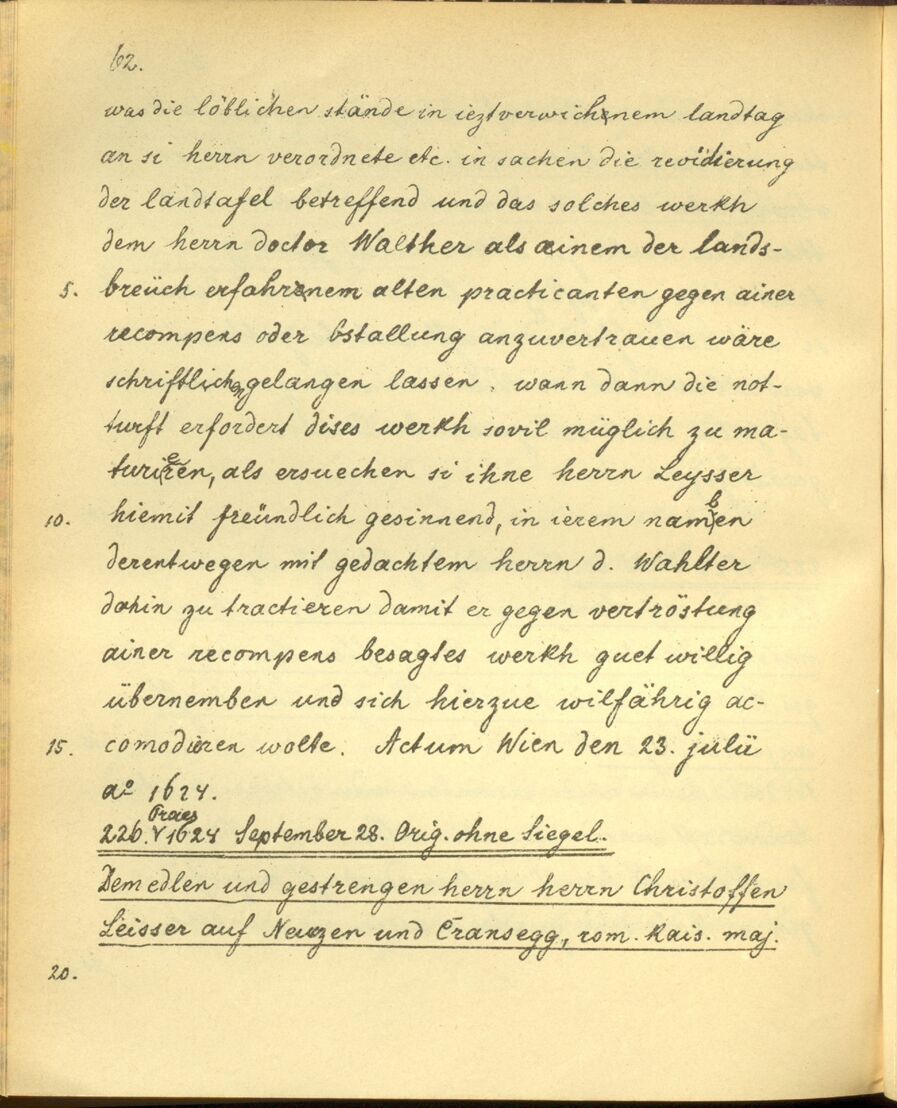 62.
was die löblichen stände in ieztverwichenem landtag
an si herrn verordnete etc. in sachen die revidierung
der landtafel betreffend und das solches werkh
dem herrn doctor Walther als ainem der lands-
5. breüch erfahrnem alten practicanten gegen ainer
recompens oder bstallung anzuvertrauen wäre
schriftlich gelangen lassen. wann dann die not-
turft erfordert dises werkh sovil müglich zu ma-
turiern, als ersuechen si ihne herrn Leysser
10. hiemit freündlich gesinnend, in ierem namben
derentwegen mit gedachtem herrn d. Wahlter
dahin zu tractieren damit er gegen vertröstung
ainer recompens besagtes werkh guet willig
übernemben und sich hierzue wilfährig ac-
15. comodieren wolte. Actum Wien den 23. julii
aº 1624.
Praes
226. 1624 September 28. Orig. ohne Siegel.
Dem edlen und gestrengen herrn herrn Christoffen
Leisser auf Neuzen und Cransegg, rom. Kais. maj.
20.